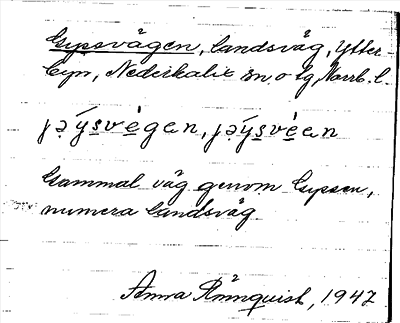 Gypsvägen, landsväg, Ytter-
byn, Nederkalix sn. o tg, Norrb. l.
jə́ysvègen, jə́ysvèen
Gammal väg genom Gypsen,
numera landsväg
Anna Rönnquist, 1947